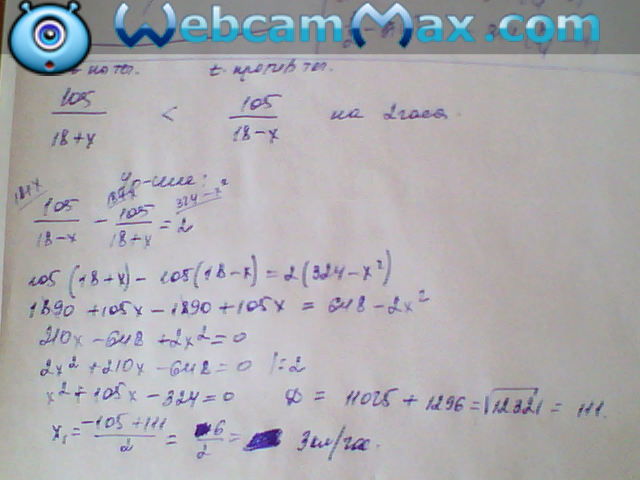 WebcamMax.com
t по теч. t против теч.
105/(18+x) < 105/(18-x) на 2 часа.
Ур-ние:
18+x 18-x 324-x²
105/(18-x) - 105/(18+x) = 2
105(18+x) - 105(18-x) = 2(324-x²)
1890 + 105x - 1890 + 105x = 648 - 2x²
210x - 648 + 2x² = 0
2x² + 210x - 648 = 0 |:2
x² + 105x - 324 = 0 D = 11025 + 1296 = √12321 = 111.
x₁ = (-105 + 111)/2 = 6/2 = 3 км/час.